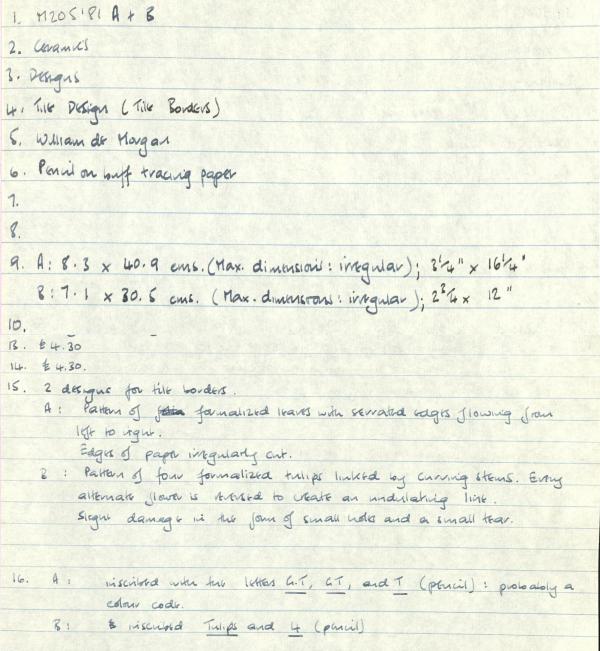 1. M205'81 A + B
2. Ceramics
3. Designs
4. Tile Design (Tile Borders)
5. William de Morgan
6. Pencil on buff tracing paper
7.
8.
9. A: 8.3 x 40.9 cms. (Max. dimensions: irregular); 3 1/4" x 16 1/4"
B: 7.1 x 30.5 cms. (Max. dimensions: irregular); 2 3/4 x 12"
10.
13. £4.30
14. £4.30.
15. 2 designs for tile borders.
A: Pattern of formalized leaves with serrated edges flowing from
left to right.
Edges of paper irregularly cut.
B: Pattern of four formalized tulips linked by curving stems. Every
alternate flower is reversed to create an undulating line.
Slight damage in the form of small holes and a small tear.
16. A: inscribed with the letters G.T, GT, and T (pencil): probably a
colour code.
B: inscribed Tulips and 4 (pencil)